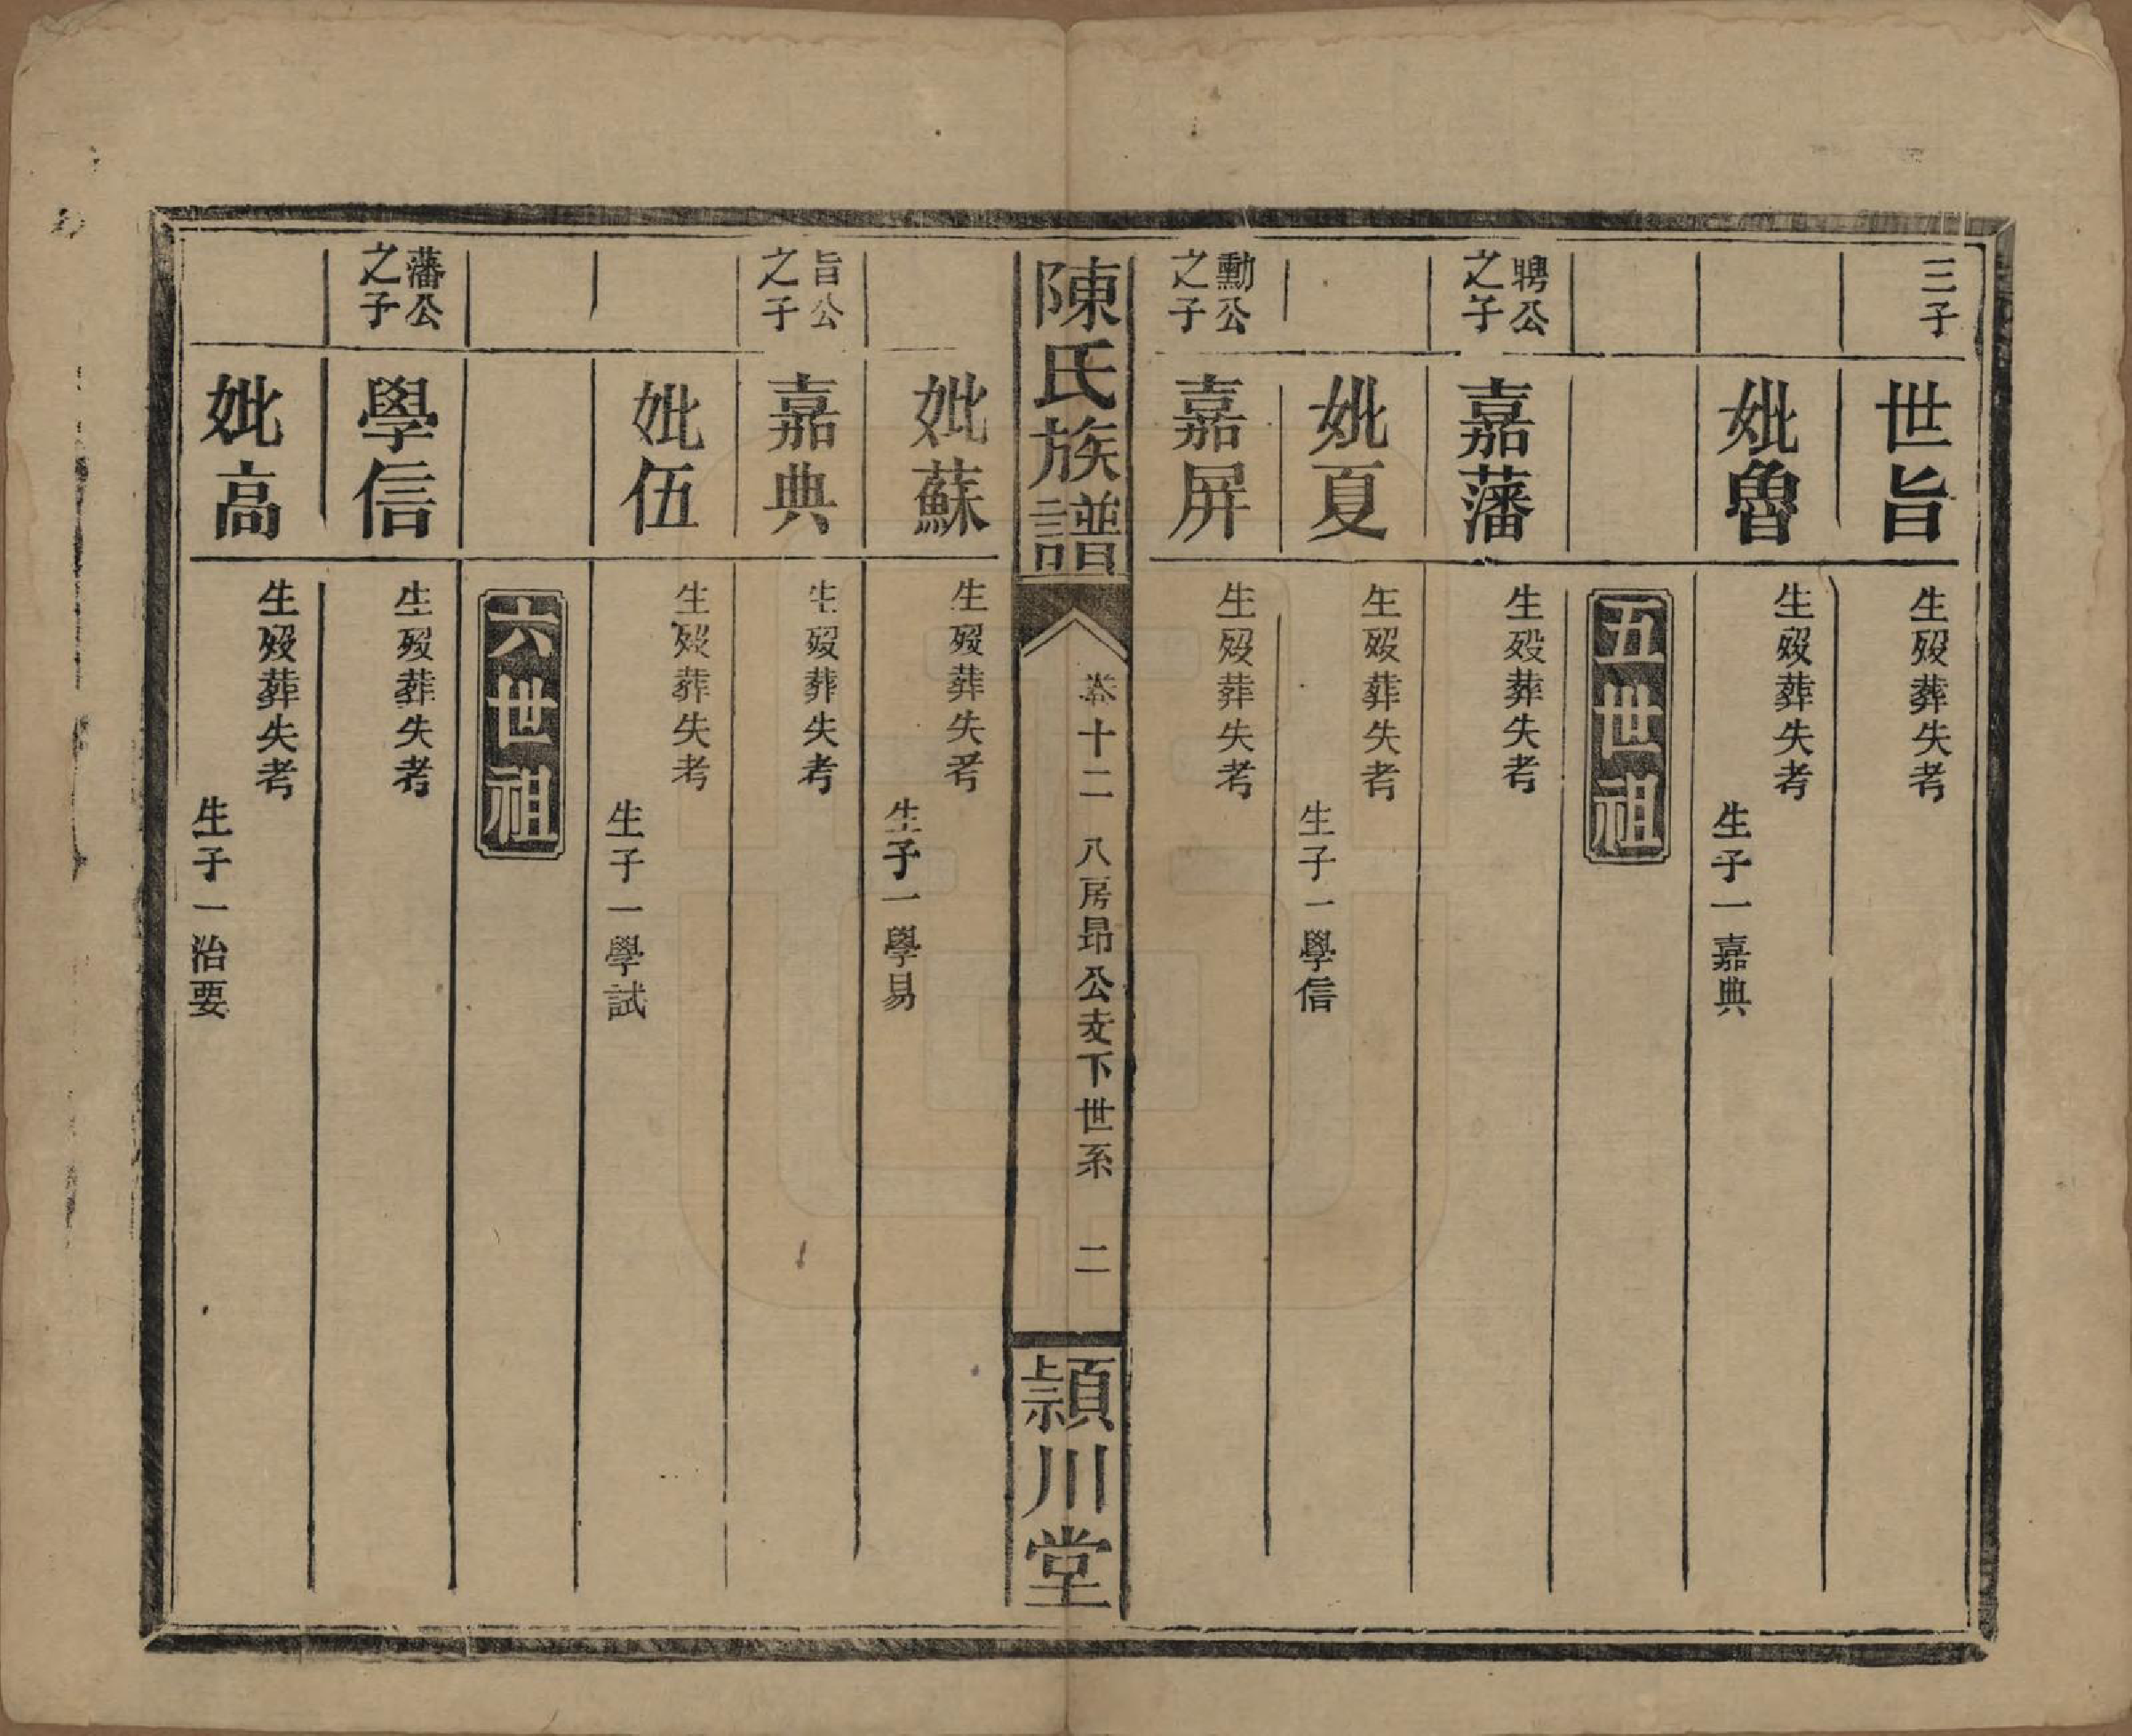 三子
世旨
生歿葬失考
妣魯
生歿葬失考
生子一嘉典
五世祖
聘公之子
嘉藩
生歿葬失考
妣夏
生歿葬失考
生子一學信
勳公之子
嘉屏
生歿葬失考
陳氏族譜
卷十二 八房昂公支下世系 二
潁川堂
妣蘇
生歿葬失考
生子一學易
旨公之子
嘉典
生歿葬失考
妣伍
生歿葬失考
生子一學試
六世祖
藩公之子
學信
生歿葬失考
妣高
生歿葬失考
生子一治要